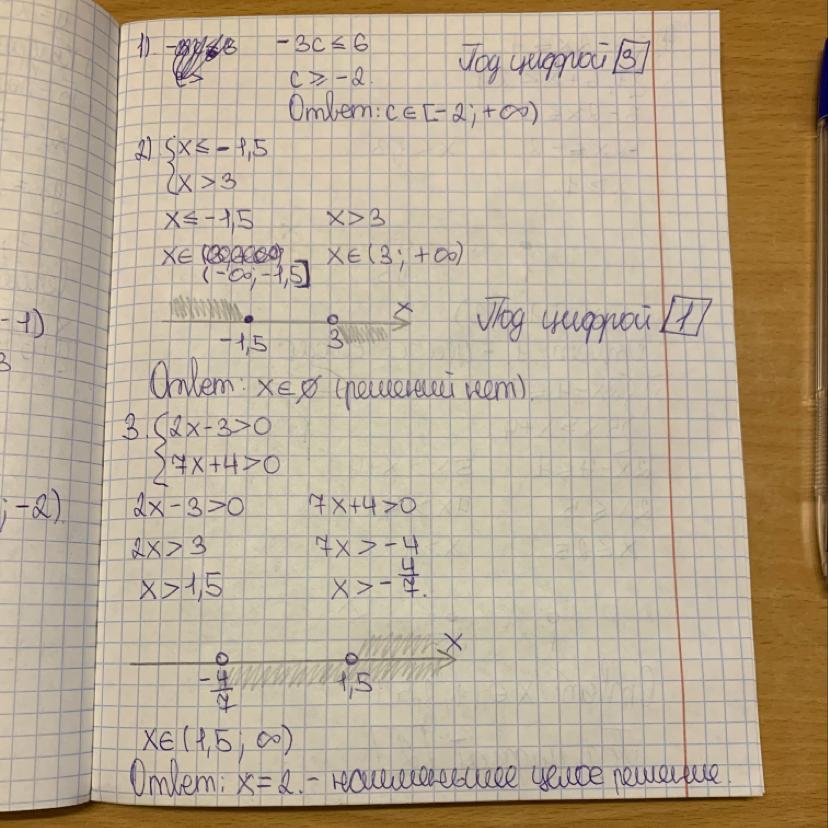 1). -3c ≤ 6
Под цифрой 3
c ≥ -2.
Ответ: c ∈ [-2; +∞)
2) { x ≤ -1,5
{ x > 3
x ≤ -1,5 x > 3
x ∈ (-∞; -1,5] x ∈ (3; +∞)
x
-1,5 3
Под цифрой 1
Ответ: x ∈ ∅ (решений нет).
3. { 2x-3>0
{ 7x+4>0
2x-3>0 7x+4>0
2x>3 7x>-4
x>1,5 x>-4/7.
x
-4/7 1,5
x ∈ (1,5; ∞)
Ответ: x=2.- наименьшее целое решение.
-1)
3
; -2)